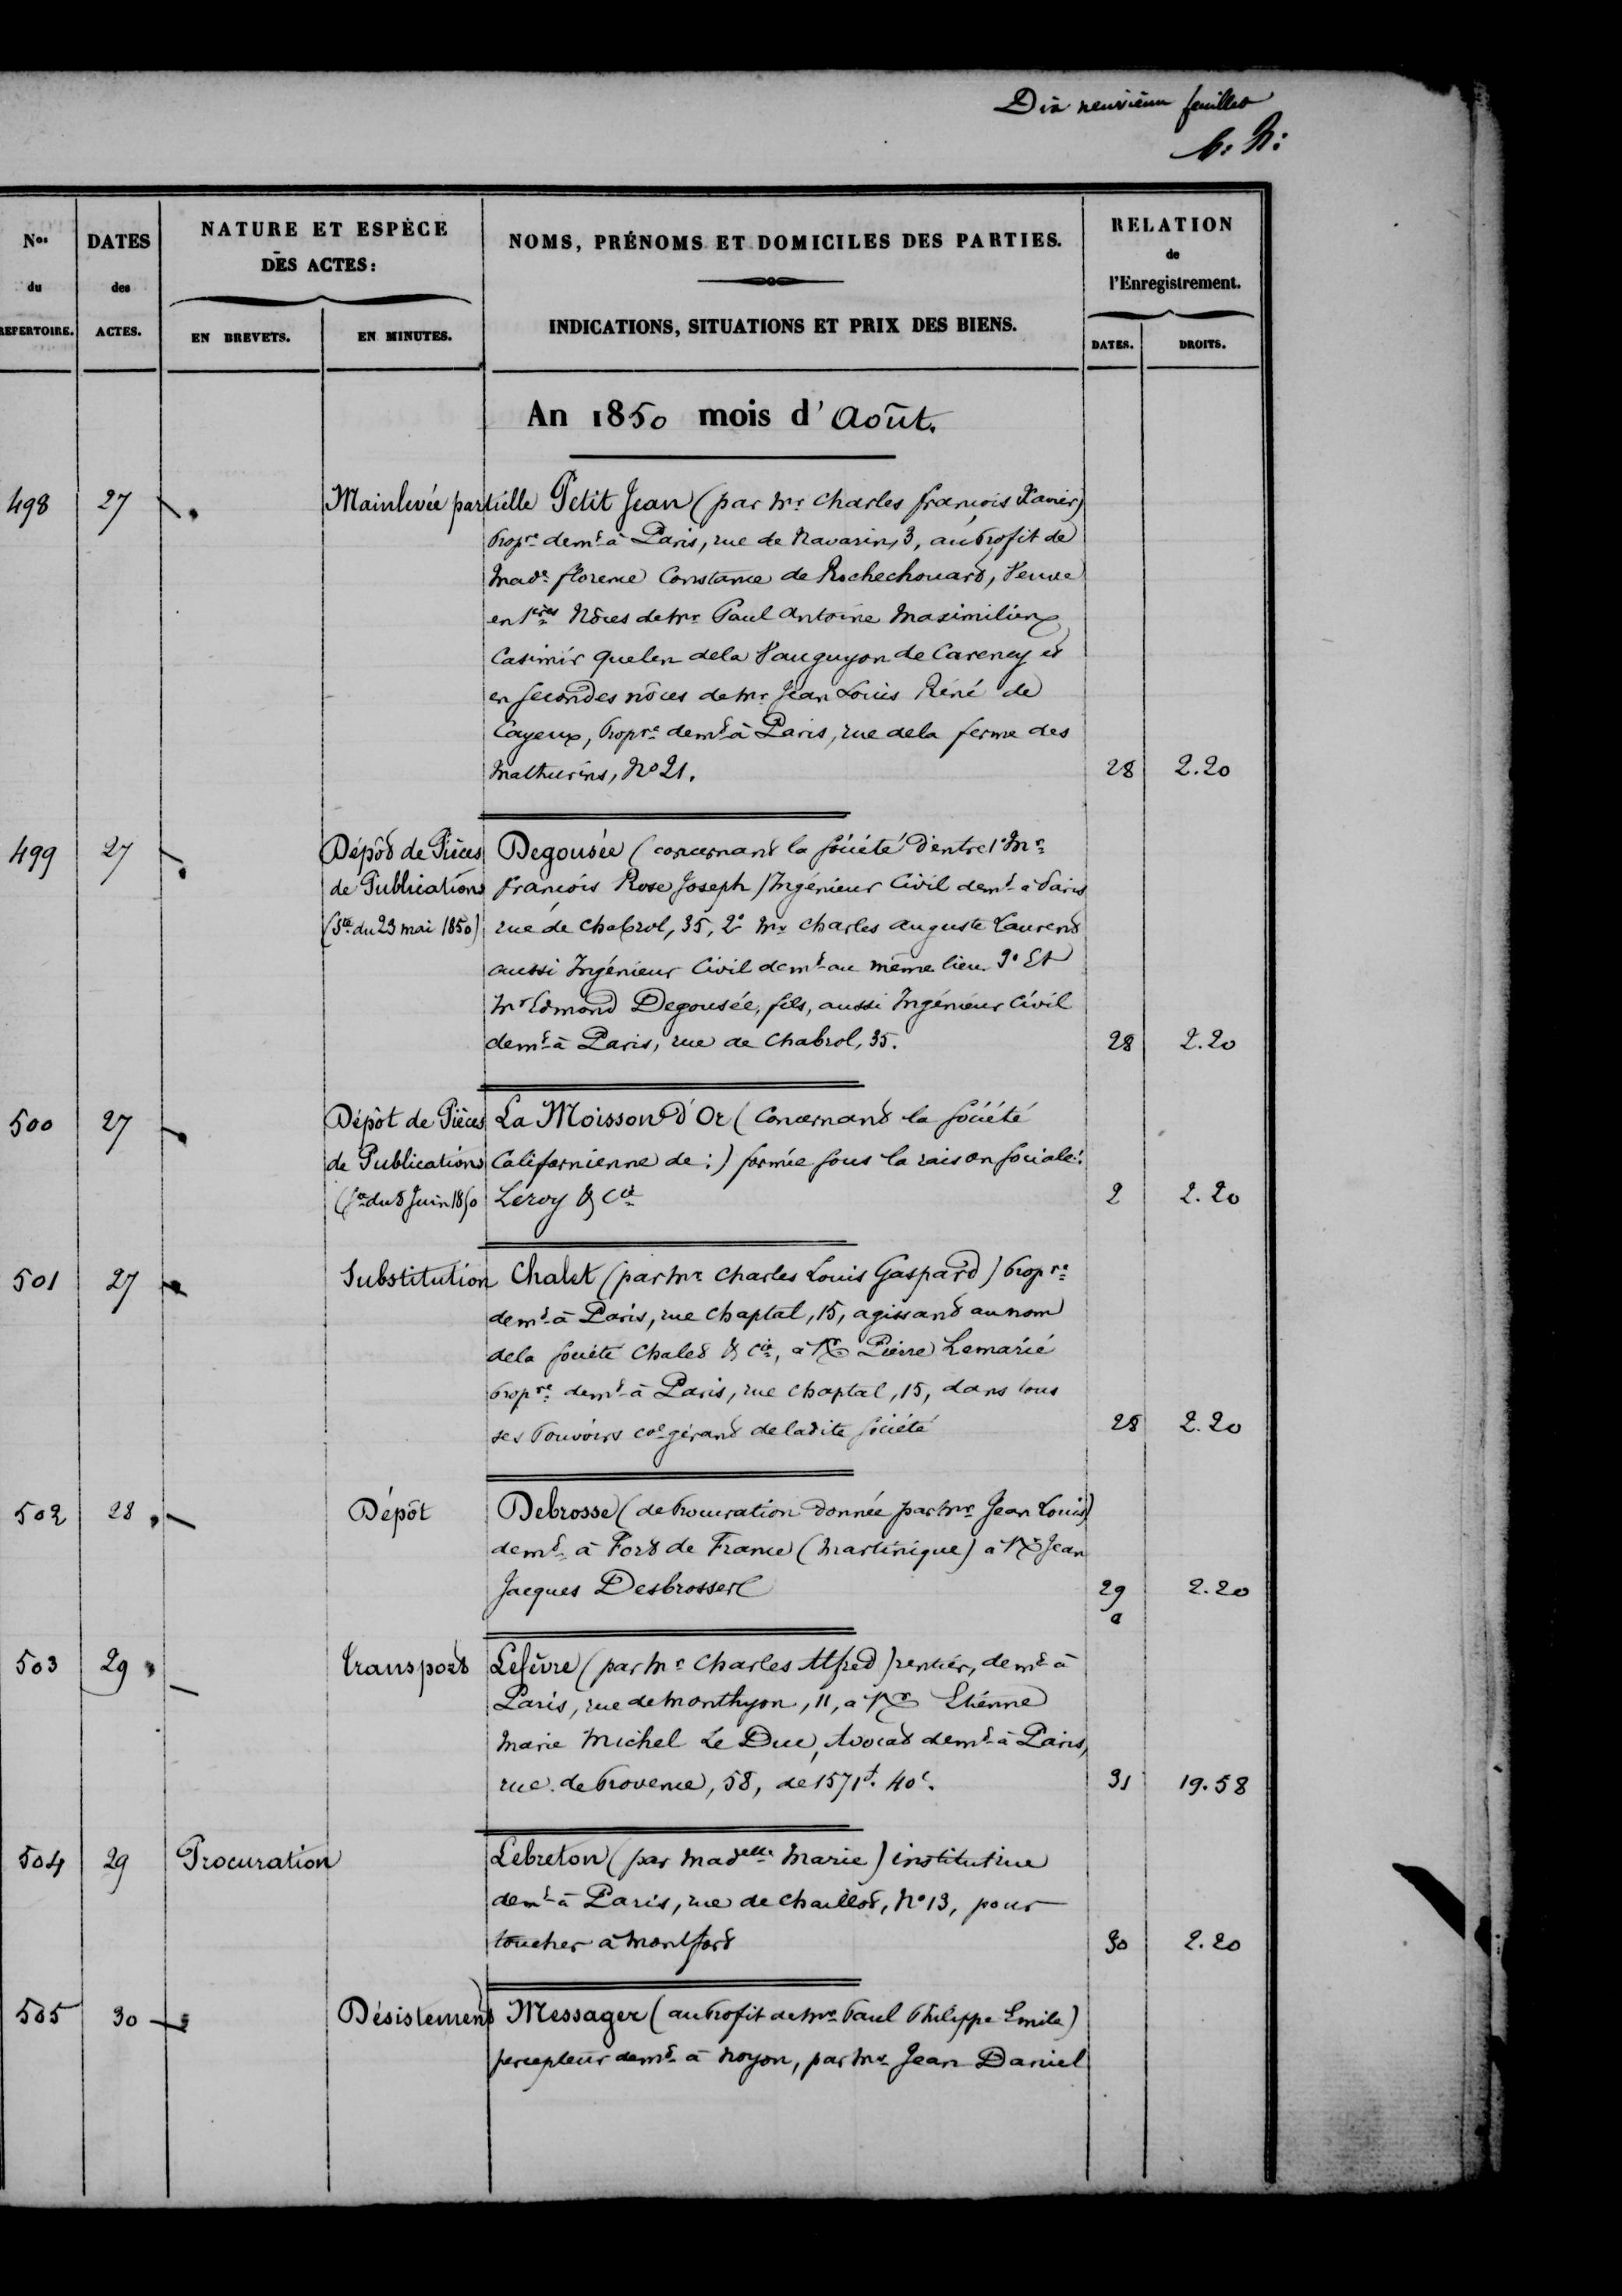 Dix neuvième feuillet
Nos
du
REPERTOIRE.
DATES
des
ACTES.
NATURE ET ESPÈCE
DES ACTES:
EN BREVETS.
EN MINUTES.
NOMS, PRÉNOMS ET DOMICILES DES PARTIES.
INDICATIONS, SITUATIONS ET PRIX DES BIENS.
RELATION
de
l'Enregistrement.
DATES.
DROITS.
An 1850 mois d'Août.
498 27 Mainlevée partielle Petit Jean (par Mr. Charles françois Xavier)
propre demt à Paris, rue de Navarin, 3, au profit de
Made florence Constance de Rochechouard, Veuve
en 1ères Nôces de Mr Paul Antoine Maximilien
Casimir quelen dela Vauguyon de Carency et
en secondes nôces de Mr Jean Louis Réné de
Cayeux, propre demt à Paris, rue dela ferme des
Mathurins, No 21. 28 2.20
499 27 Dépôt de Pièces Degousée (concernant la société d'entre 1° Mr
de Publications françois Rose Joseph) Ingénieur Civil demt à Paris
(Sté du 23 mai 1850) rue de Chabrol, 35, 2° Mr Charles Auguste Laurent
aussi Ingénieur Civil demt au même lieu 3° Et
Mr Edmond Degousée, fils, aussi Ingénieur Civil
demt à Paris, rue de Chabrol, 35. 28 2.20
500 27 Dépôt de Pièces La Moisson d'Or (Concernant la société
de Publications Californienne de:) formée sous la raison sociale:
(Sté du 8 Juin 1850 Leroy & Cie 2 2.20
501 27 Substitution Chalet (par Mr Charles Louis Gaspard) propre
demt à Paris, rue Chaptal, 15, agissant au nom
dela société Chalet & Cie, à Mr Pierre Lemarié
propre demt à Paris, rue Chaptal, 15, dans tous
ses pouvoirs coe gérant de ladite société 28 2.20
502 28 Dépôt Debrosse (de Procuration donnée par Mr Jean Louis)
demt à Fort de France (Martinique) à Mr Jean
Jacques Desbrosse 29 2.20
503 29 Transport Lefèvre (par Mr Charles Alfred) rentier, demt à
Paris, rue de Monthyon, 11, à Mr Etienne
Marie Michel Le Duc, Avocat demt à Paris,
rue de Provence, 58, de 1571f. 40c. 31 19.58
504 29 Procuration Lebreton (par Madelle Marie) institutrice
demt à Paris, rue de Chaillot, No 13, pour
toucher à Montfort 30 2.20
505 30 Désistement Messager (au profit de Mr Paul Philippe Emile)
percepteur demt à Noyon, par Mr Jean Daniel